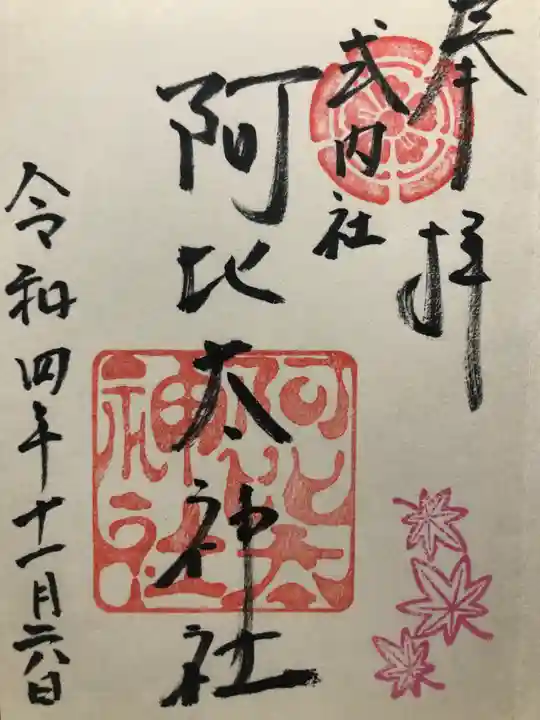 奉拝
式内社
阿比太神社
阿比太
神社
令和四年十一月二六日